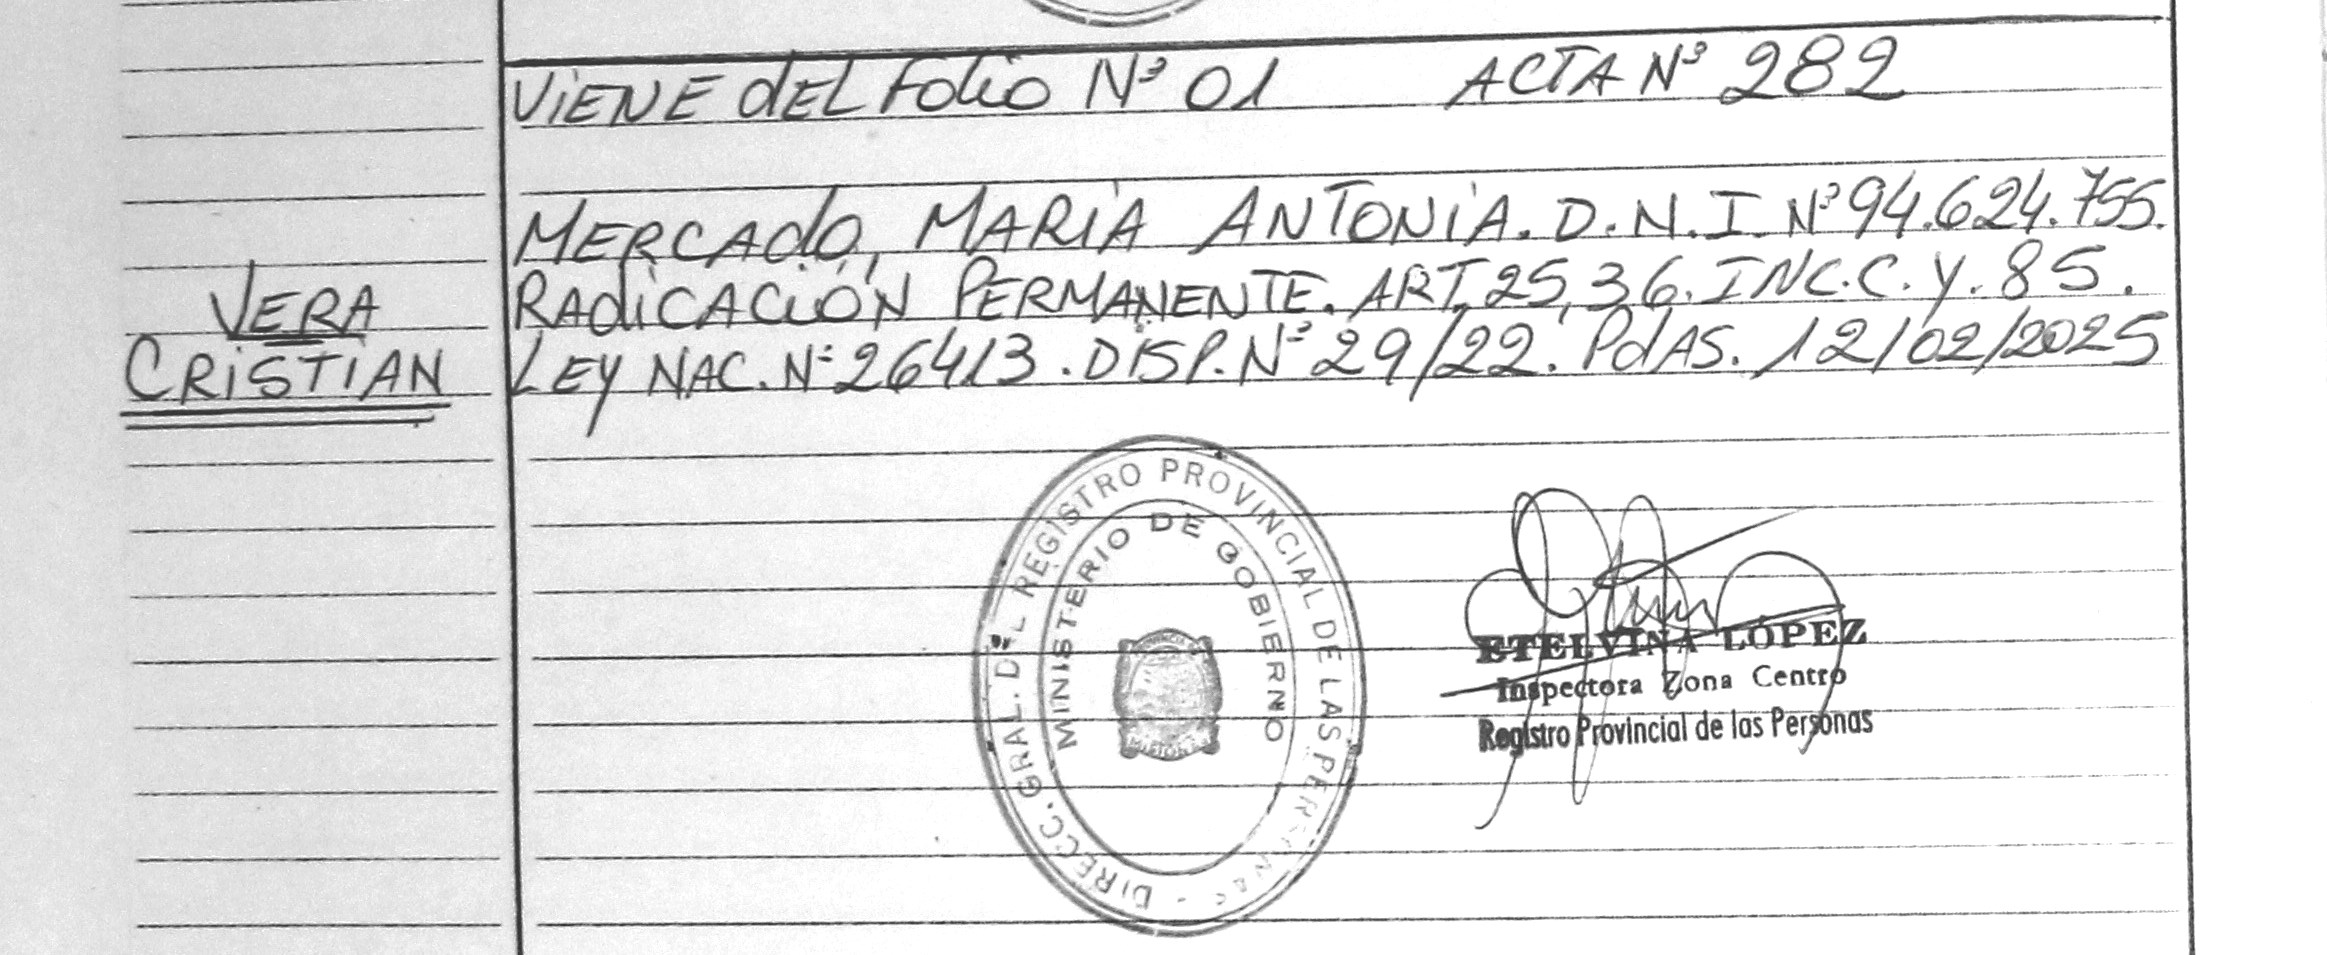 VIENE dEL FOLIO Nº 01 ACTA Nº 282
MERCADO, MARIA ANTONIA. D.N.I Nº 94.624.755.
RADICACIÓN PERMANENTE. ART, 25, 36. INC.C. Y. 85.
LEY NAC. Nº 26413. DISP. Nº 29/22. PdAS. 12/02/2025
VERA
CRISTIAN
DIRECC. GRAL. DEL REGISTRO PROVINCIAL DE LAS PERSONAS -
MINISTERIO DE GOBIERNO
ETELVINA LÓPEZ
Inspectora Zona Centro
Registro Provincial de las Personas